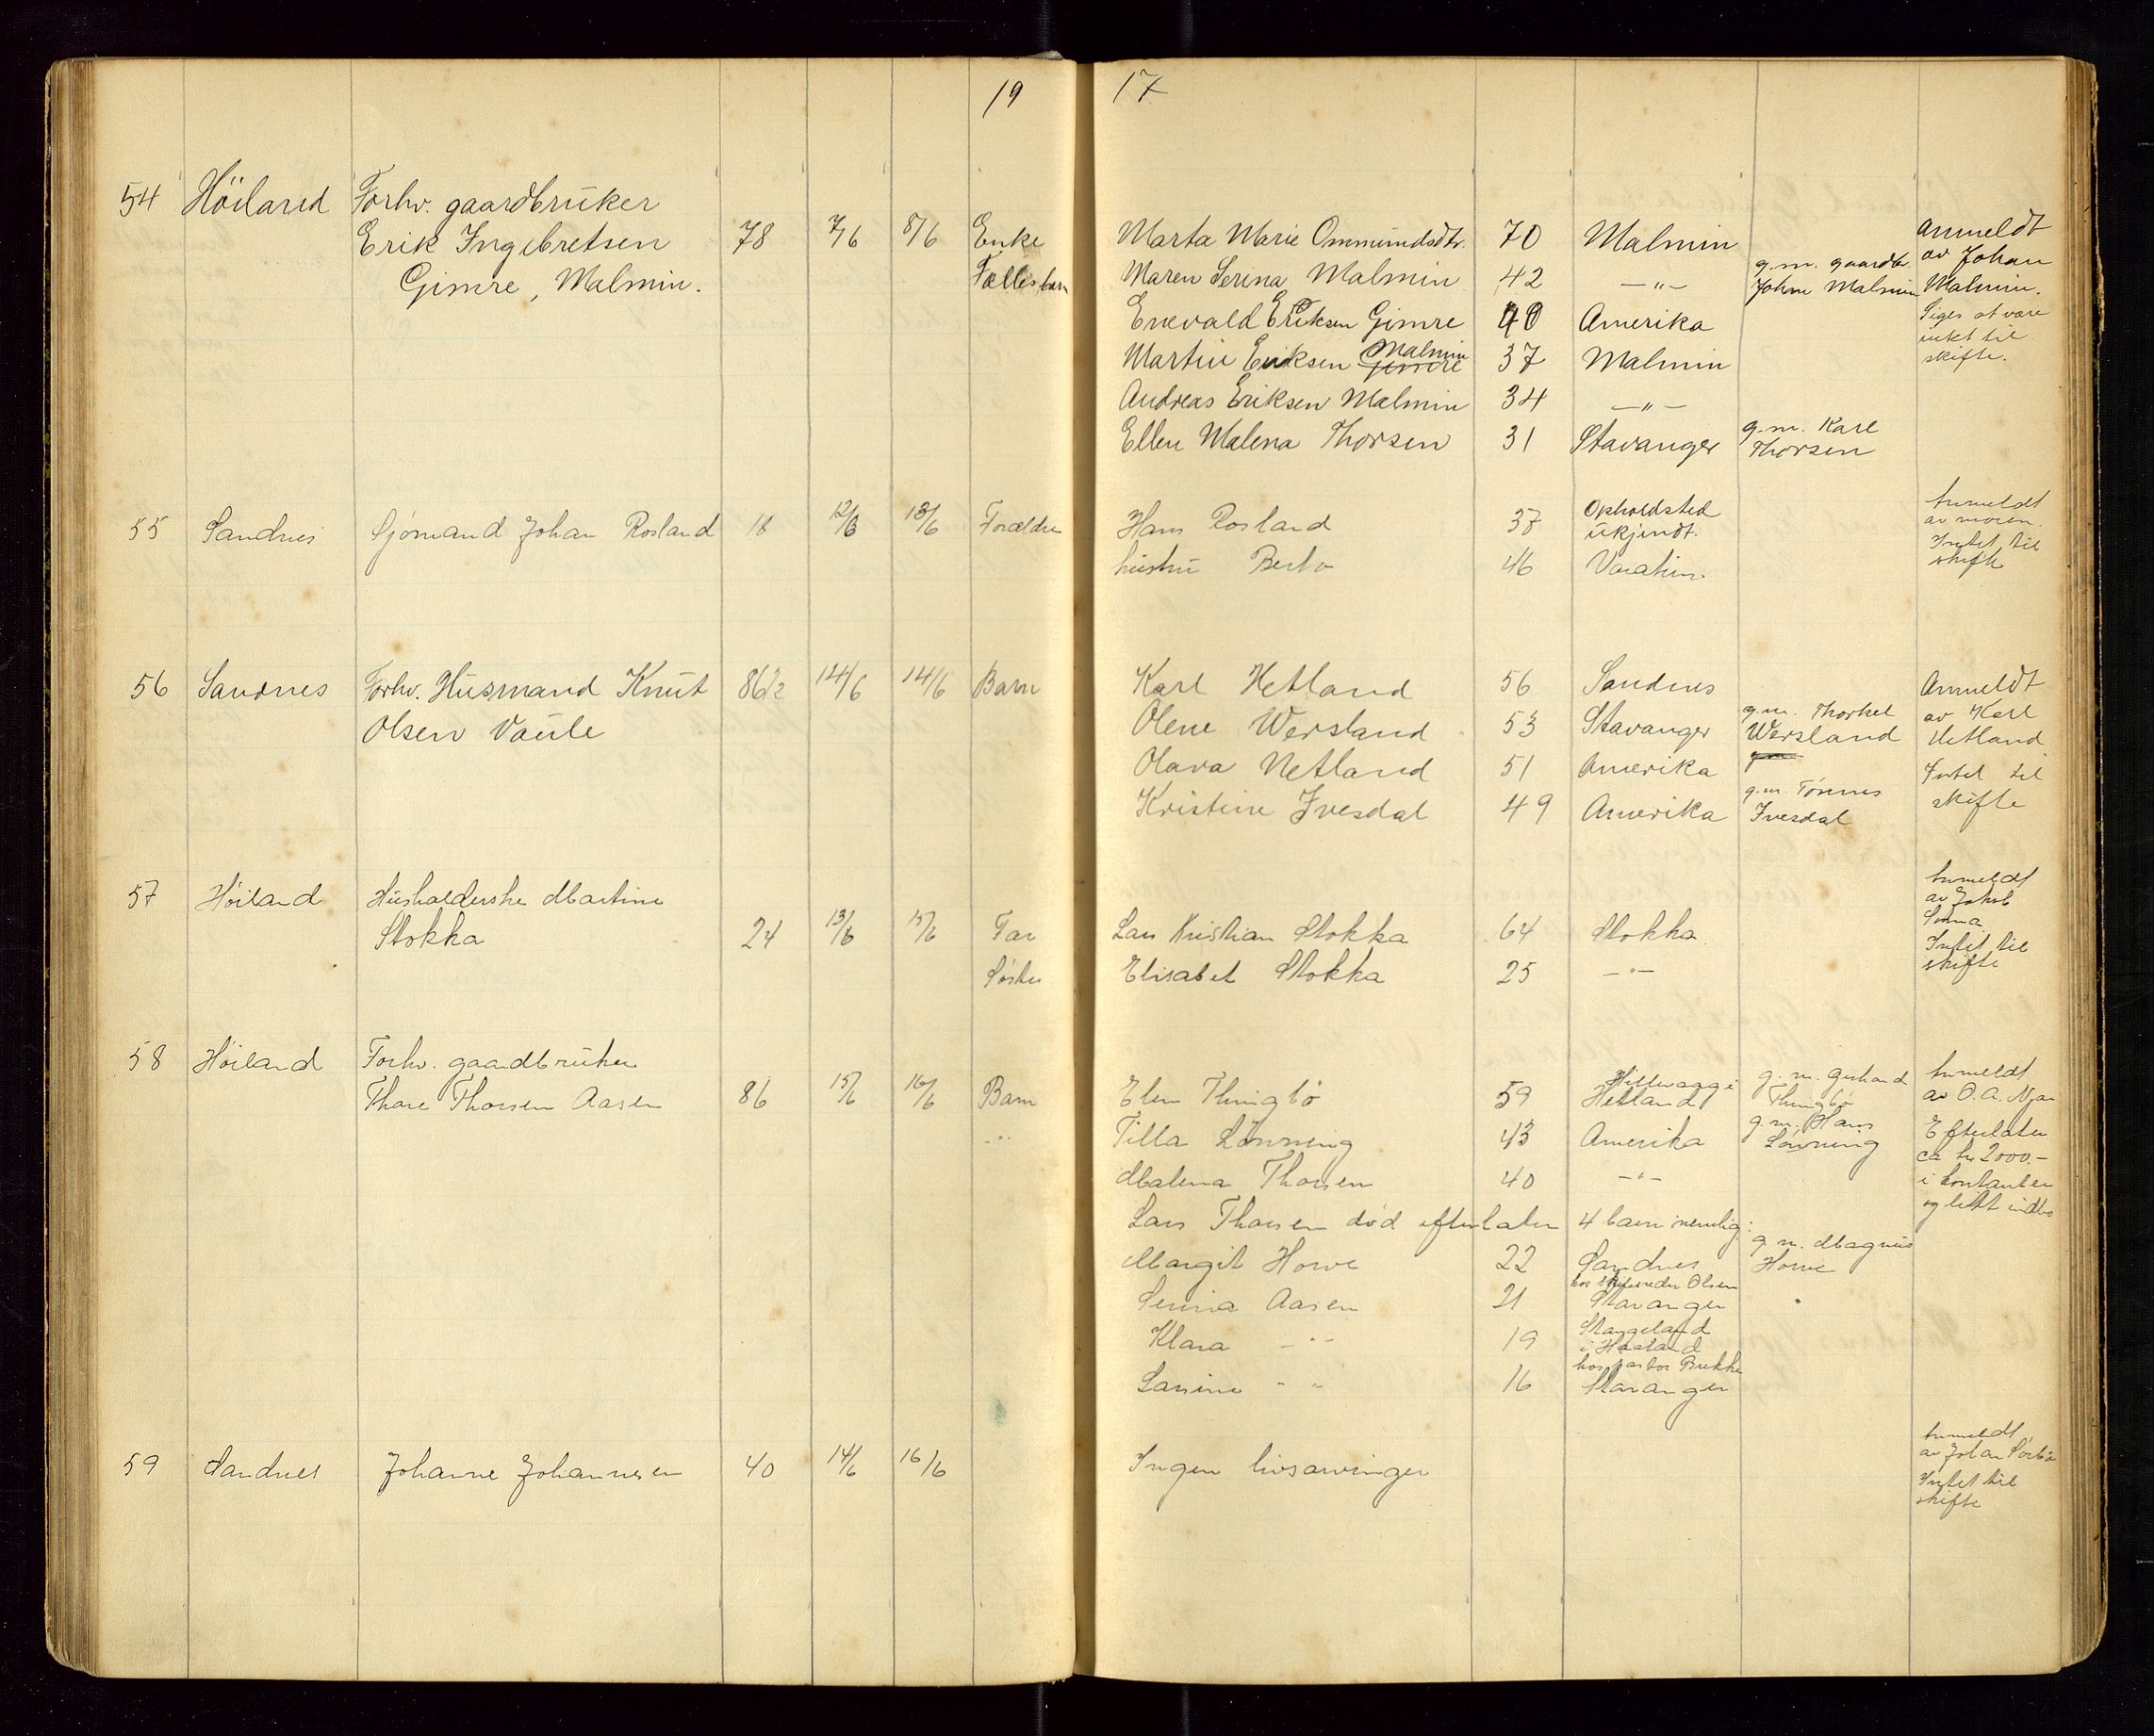 19 17
54 Höiland Forhv. gaardbruker
Erik Ingebretsen 78 7/6 8/6 Enke Marta Marie Ommundsdtr. 70 Malmin Anmeldt
Gimre, Malmin. Fællesbarn Maren Serina Malmin 42 —"— g.m. gaardbr. av Johan
John Malmin Malmin.
Enevald Eriksen Gimre 40 Amerika Siges at være
intet til
Martin Eriksen Gimre Malmin 37 Malmin skifte.
Andreas Eriksen Malmin 34 —"—
Ellen Malena Thorsen 31 Stavanger g.m. Karl
Thorsen
55 Sandnes Sjömand Johan Rosland 18 12/6 13/6 Forældre Hans Rosland 37 Opholdsted
ukjendt. Anmeldt
av moren.
hustru Berta 46 Varatun Intet til
skifte
56 Sandnes Forhv. Husmand Knut 86 1/2 14/6 14/6 Barn Karl Hetland 56 Sandnes Anmeldt
Olsen Vaule Olene Wersland 53 Stavanger g.m. Thorkel
Wersland av Karl
Hetland
Olava Hetland 51 Amerika gm Intet til
Kristine Ivesdal 49 Amerika g.m. Tönnes
Ivesdal skifte
57 Höiland Husholderske Martine Anmeldt
av Jakob
Stokka 24 13/6 15/6 Far Lars Kristian Stokka 64 Stokka
Intet til
Söster Elisabet Stokka 25 —"— skifte
58 Höiland Forhv. gaardbruker
Thore Thorsen Aasen 86 15/6 16/6 Barn Elen Thingbö 59 Hillevaag i
Hetland g.m. Gerhard
Thingbö Anmeldt
av O. A. Njaa
—"— Tilla Lönning 43 Amerika g.m. Hans
Lönning Efterlater
ca kr 2000.-
Malena Thorsen 40 —"— i kontanter
og litt indbo
Lars Thorsen död efterlater 4 barn nemlig:
Margit Horve 22 Sandnes g.m. Magnus
Horve
Serina Aasen 21 hos skibsreder Olsen
Stavanger
Klara —"— 19 Stangeland
i Haaland
Larsine —"— 16 hos pastor Brekke
Stavanger
59 Sandnes Johanne Johannesen 40 14/6 16/6 Ingen livsarvinger Anmeldt
av Johan Sörbö
Intet til
skifte